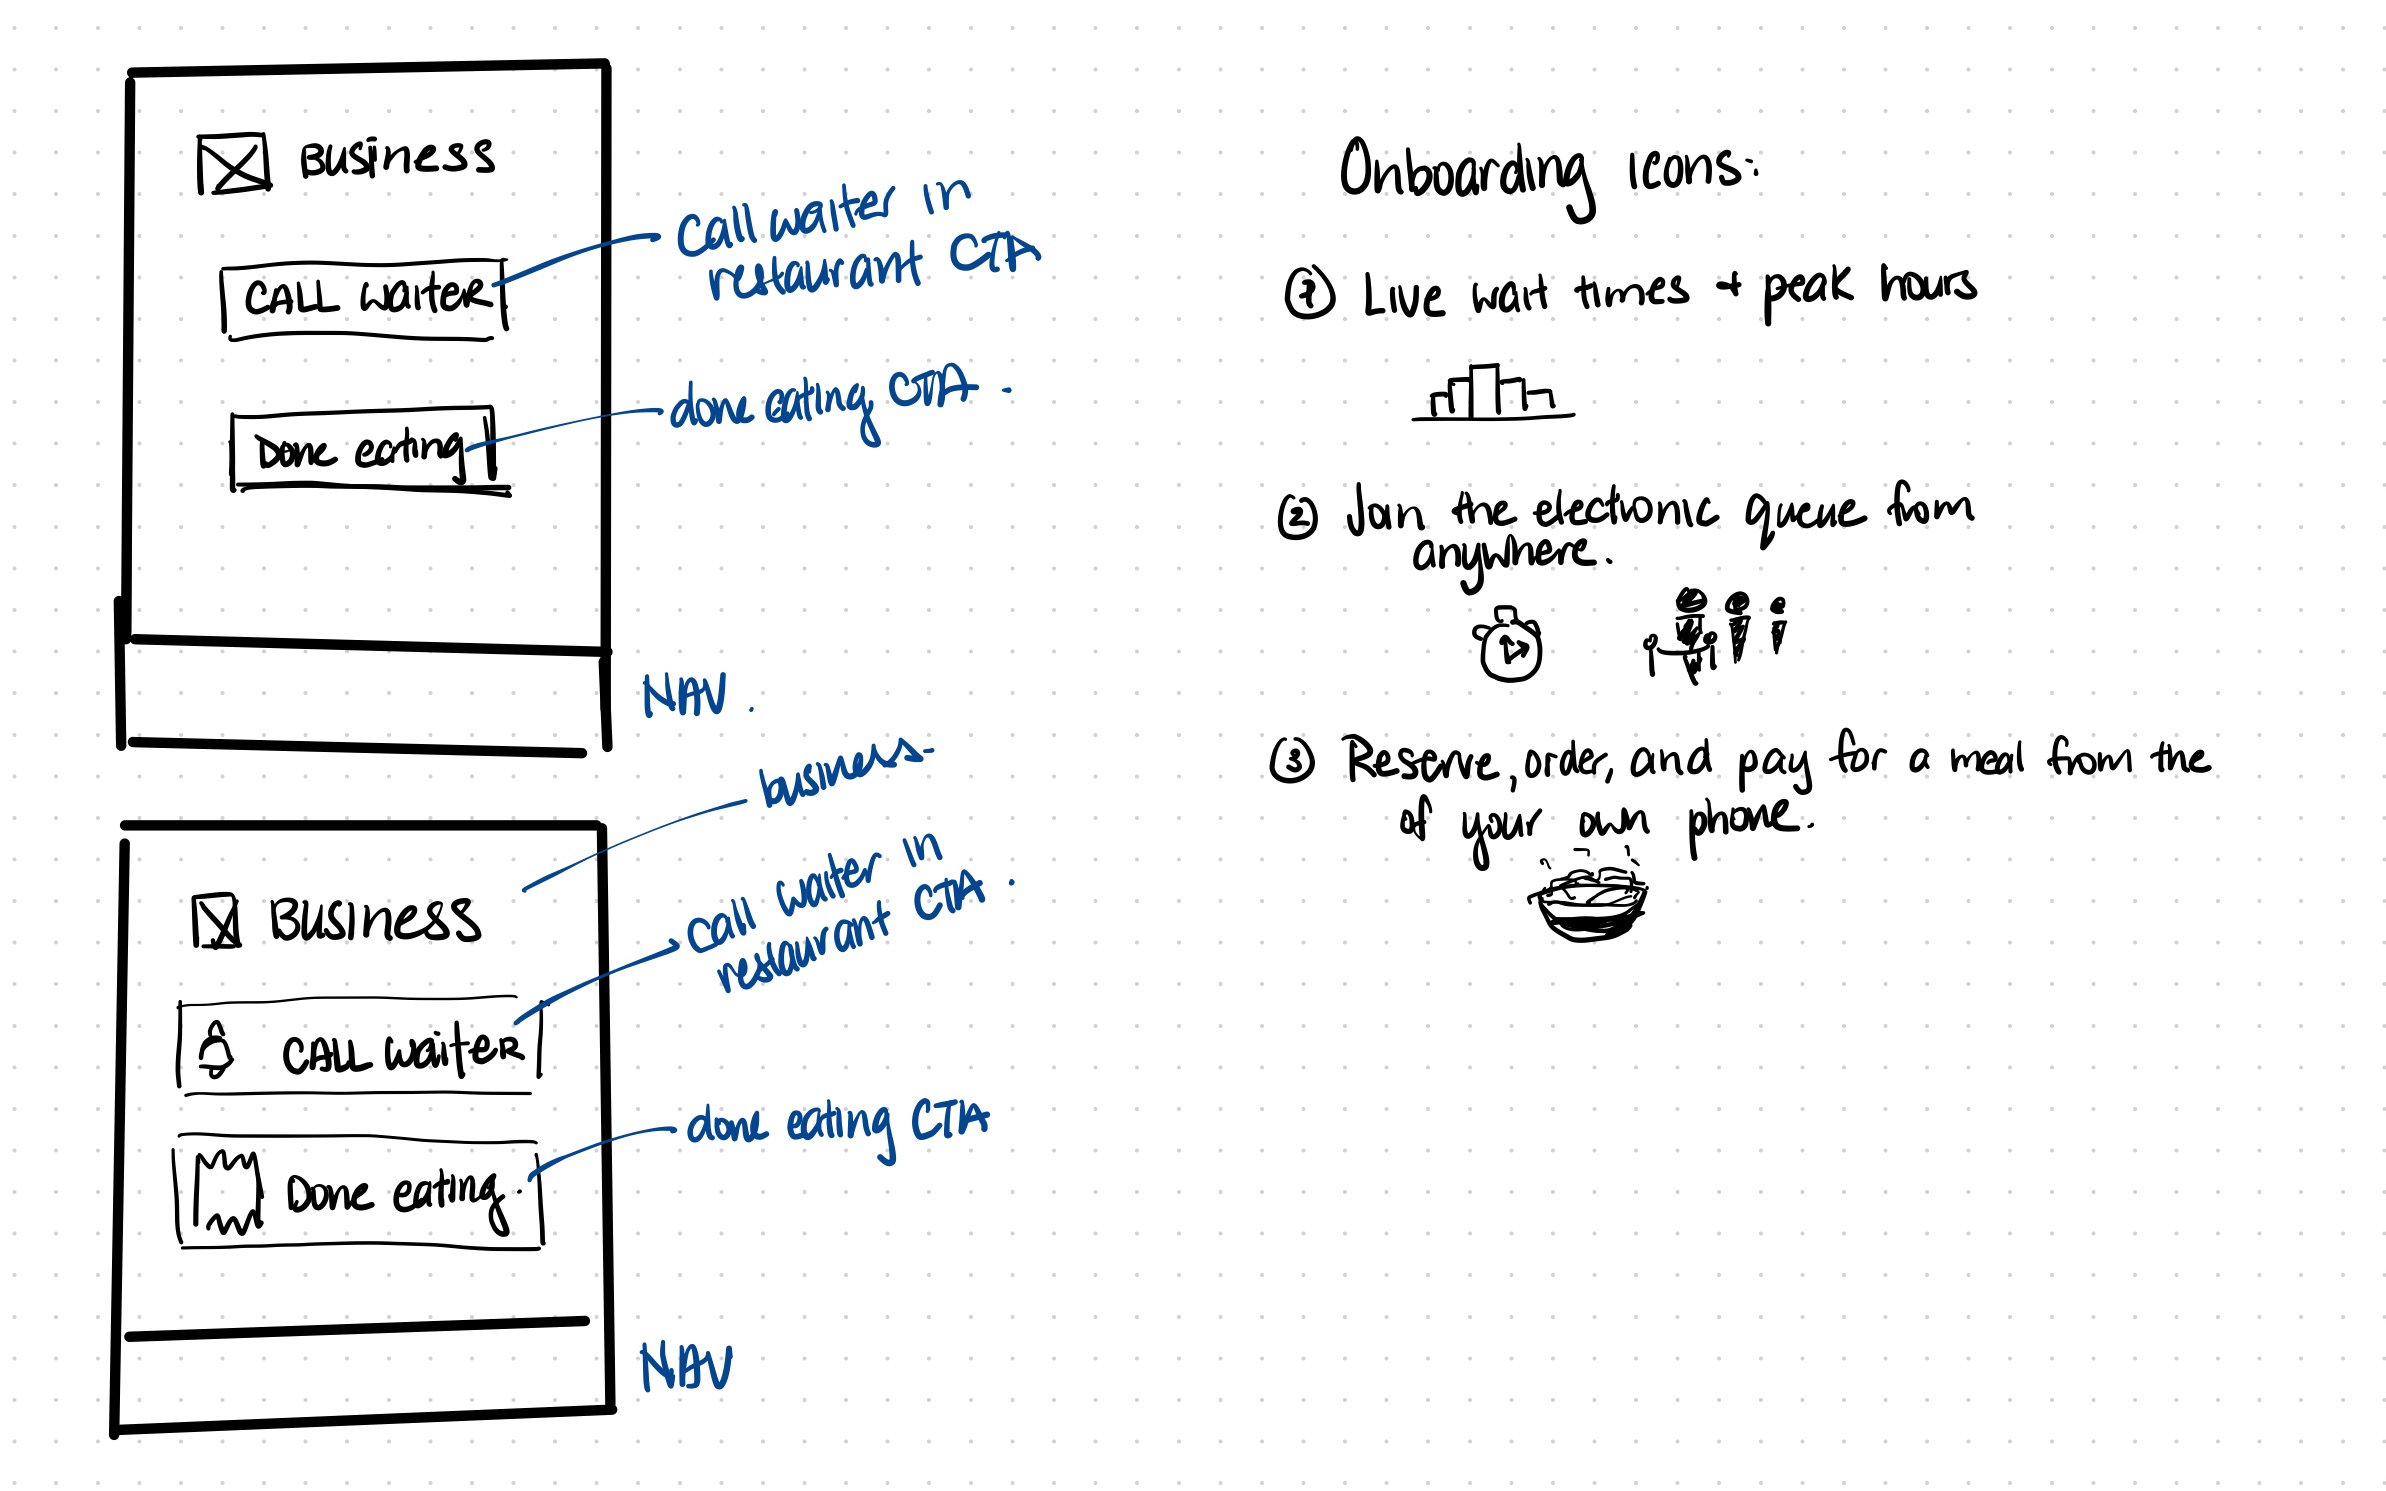 Business
Call waiter in
restaurant CTA
CALL waiter
done eating CTA.
Done eating
NAV.
business
Business
Call waiter in
restaurant CTA.
CALL waiter
done eating CTA
Done eating.
NAV
Onboarding icons:
① Live wait times + peak hours
② Join the electronic queue from
anywhere.
③ Reserve, order, and pay for a meal from the
of your own phone.